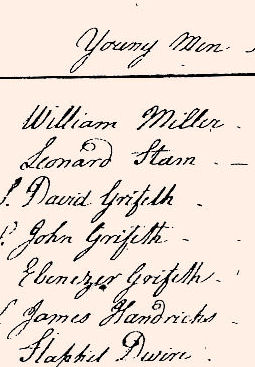 Young Men
William Miller
Leonard Stam
David Grifeth
John Grifeth
Ebenezer Grifeth
James Handricks
Dwire